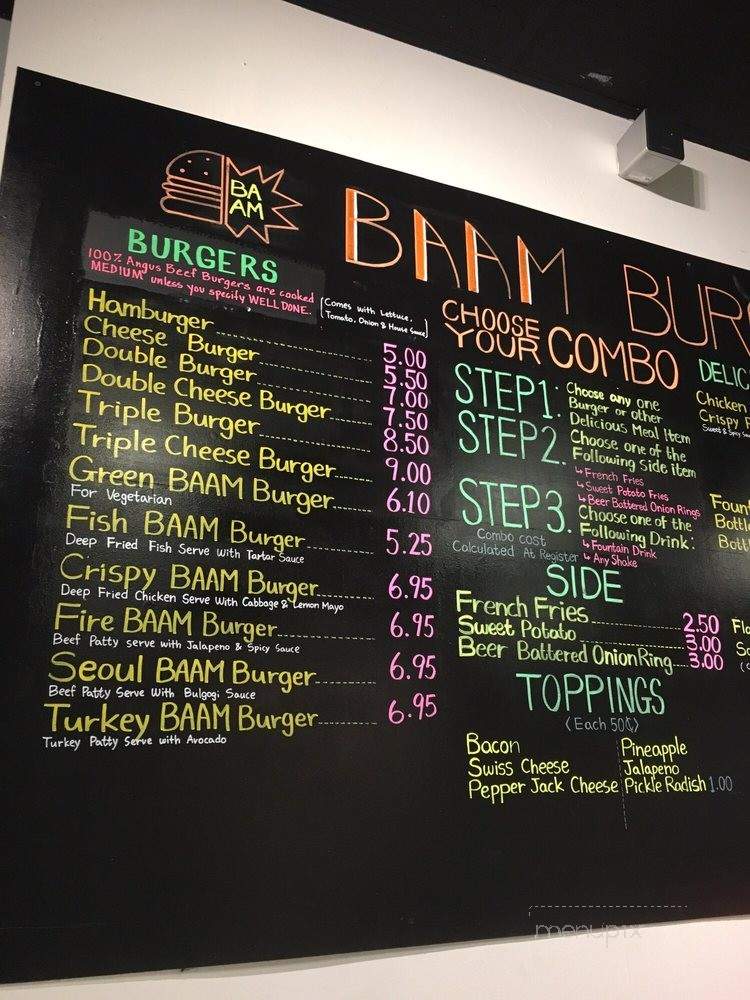 BA
AM
BAAM BUR
BURGERS
100% Angus Beef Burgers are cooked
MEDIUM unless you specify WELL DONE.
(Comes with Lettuce,
Tomato, Onion & House Sauce)
Hamburger 5.00
Cheese Burger 5.50
Double Burger 7.00
Double Cheese Burger 7.50
Triple Burger 8.50
Triple Cheese Burger 9.00
Green BAAM Burger 6.10
For Vegetarian
Fish BAAM Burger 5.25
Deep Fried Fish Serve with Tartar Sauce
Crispy BAAM Burger 6.95
Deep Fried Chicken Serve With Cabbage & Lemon Mayo
Fire BAAM Burger 6.95
Beef Patty serve with Jalapeno & Spicy Sauce
Seoul BAAM Burger 6.95
Beef Patty Serve With Bulgogi Sauce
Turkey BAAM Burger 6.95
Turkey Patty Serve with Avocado
CHOOSE
YOUR COMBO
STEP1. Choose any one
Burger or other
Delicious Meal Item
STEP2. Choose one of the
Following Side item
↳ French Fries
↳ Sweet Potato Fries
↳ Beer Battered Onion Rings
STEP3. Choose one of the
Following Drink:
↳ Fountain Drink
↳ Any Shake
Combo cost
Calculated At Register
SIDE
French Fries 2.50
Sweet Potato 3.00
Beer Battered Onion Ring 3.00
TOPPINGS
(Each 50¢)
Bacon
Swiss Cheese
Pepper Jack Cheese
Pineapple
Jalapeno
Pickle Radish 1.00
DELIC
Chicken
Crispy
Sweet & Spicy
Fount
Bottl
Bott
Fla
menupix